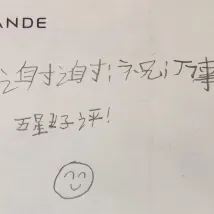 ANDE
谢谢祝
五星好评!